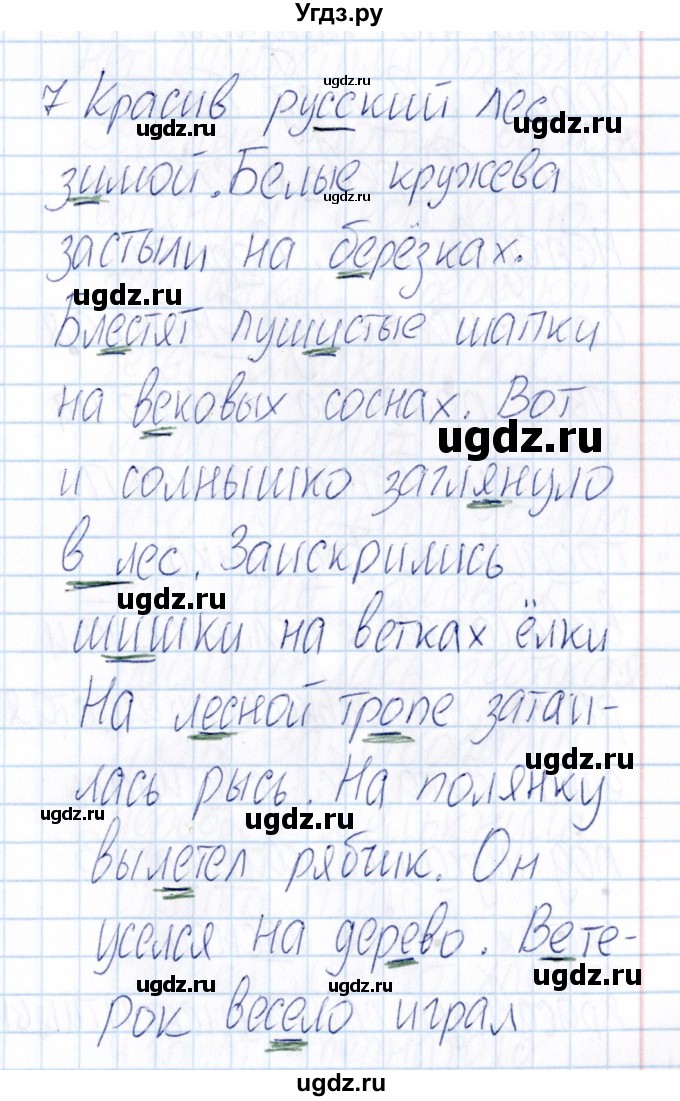 Угдз.ру
ugdz.ru
7 Красив русский лес
ugdz.ru
ugdz.ru
зимой. Белые кружева
ugdz.ru
застыли на берёзках.
ugdz.ru
Блестят пушистые шапки
на вековых соснах. Вот
ugdz.ru
и солнышко заглянуло
в лес. Заискрились
ugdz.ru
шишки на ветках ёлки
На лесной тропе затаи-
ugdz.ru
лась рысь. На полянку
ugdz.ru
ugdz.ru
вылетел рябчик. Он
уселся на дерево. Вете-
ugdz.ru
ugdz.ru
ugdz.ru
рок весело играл
ugdz.ru